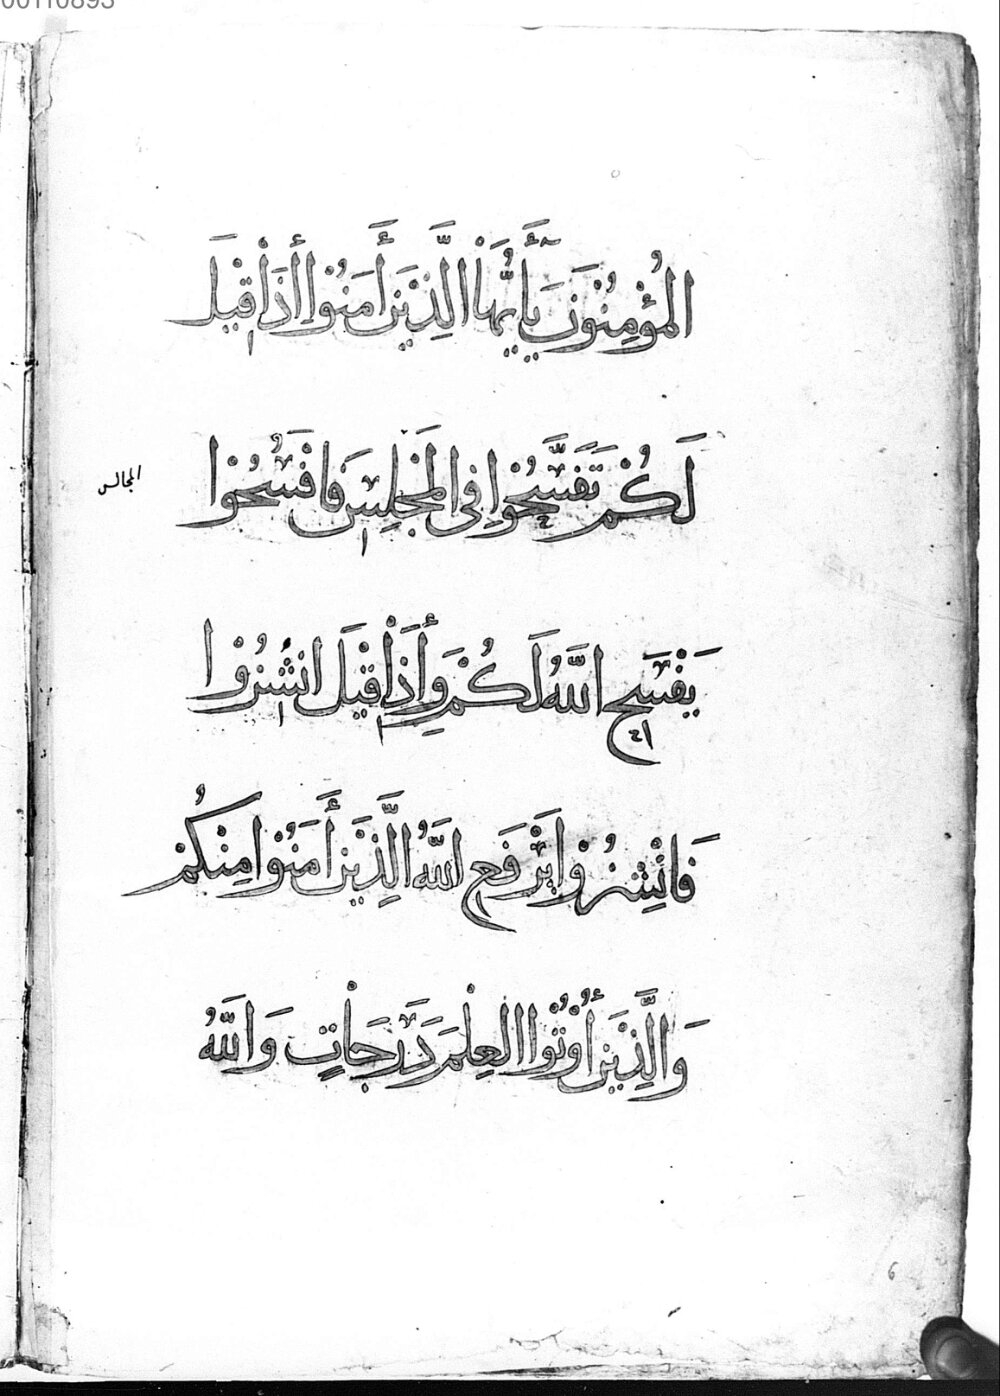 00110893
المُؤْمِنُونَ يَاأَيُّهَا الَّذِينَ أَمَنُوا إِذَا قِيلَ
لَكُمْ تَفَسَّحُوا فِي المَجْلِسِ فَافْسَحُوا
المجالس
يَفْسَحِ اللَّهُ لَكُمْ وَإِذَا قِيلَ انشُزُوا
فَانْشِزُوا يَرْفَعِ اللَّهُ الَّذِينَ أَمَنُوا مِنكُمْ
وَالَّذِينَ أُوتُوا العِلْمَ دَرَجَاتٍ وَاللَّهُ
6